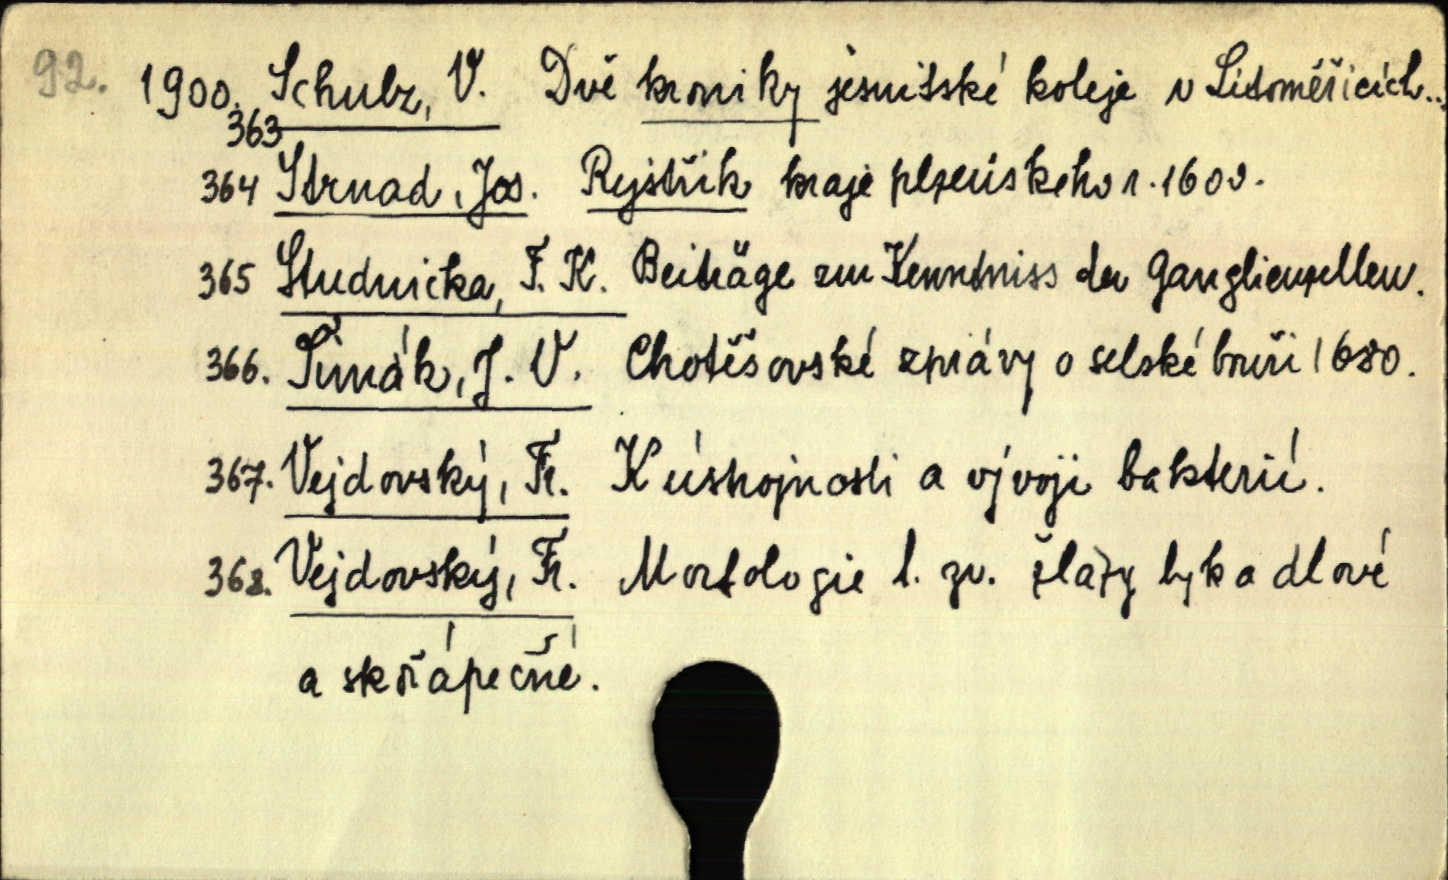 92. 1900. Schulz, V. Dvě kroniky jesuitské koleje v Litoměřicích..
363
364 Strnad, Jos. Rejstřík kraje plzeňskeho r. 1600.
365 Studnicka, F. K. Beiträge zur Kenntniss der Ganglienzellen.
366. Šimák, J. V. Chotěšovské zprávy o selské bouři 1680.
367. Vejdovský, Fr. K ústrojnosti a vývoji bakterií.
368. Vejdovský, Fr. Morfologie t. zv. žlázy tykadlové
a skořápečné.